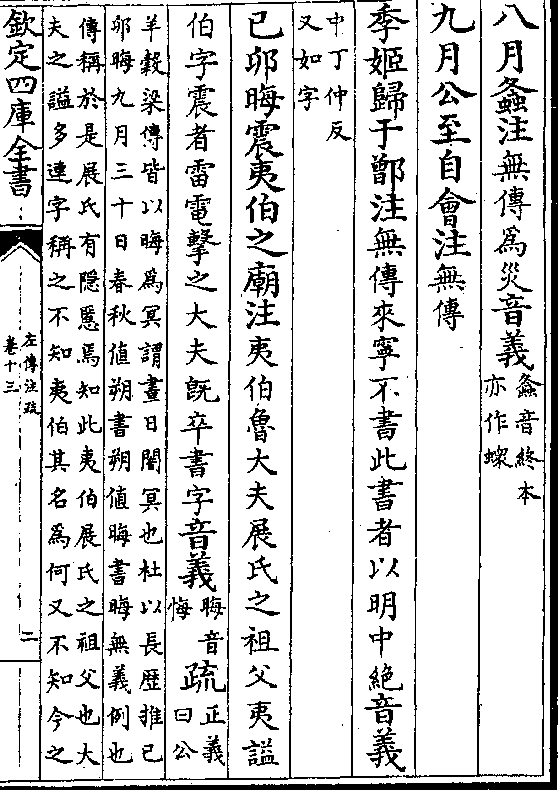 八月螽注無傳為災音義螽音終本
亦作蠂
九月公至自會注無傳
季姬歸于鄫注無傳來寧不書此書者以明中絶音義
中丁仲反
又如字
己卯晦震夷伯之廟注夷伯魯大夫展氏之祖父夷諡
伯字震者雷電擊之大夫既卒書字音義晦音
悔疏正義
曰公
羊穀梁傳皆以晦為冥謂晝日闇冥也杜以長歴推己
卯晦九月三十日春秋值朔書朔值晦書晦無義例也
傳稱於是展氏有隠慝焉知此夷伯展氏之祖父也大
夫之諡多連字稱之不知夷伯其名為何又不知今之
欽定四庫全書
左傳注疏
卷十三
二